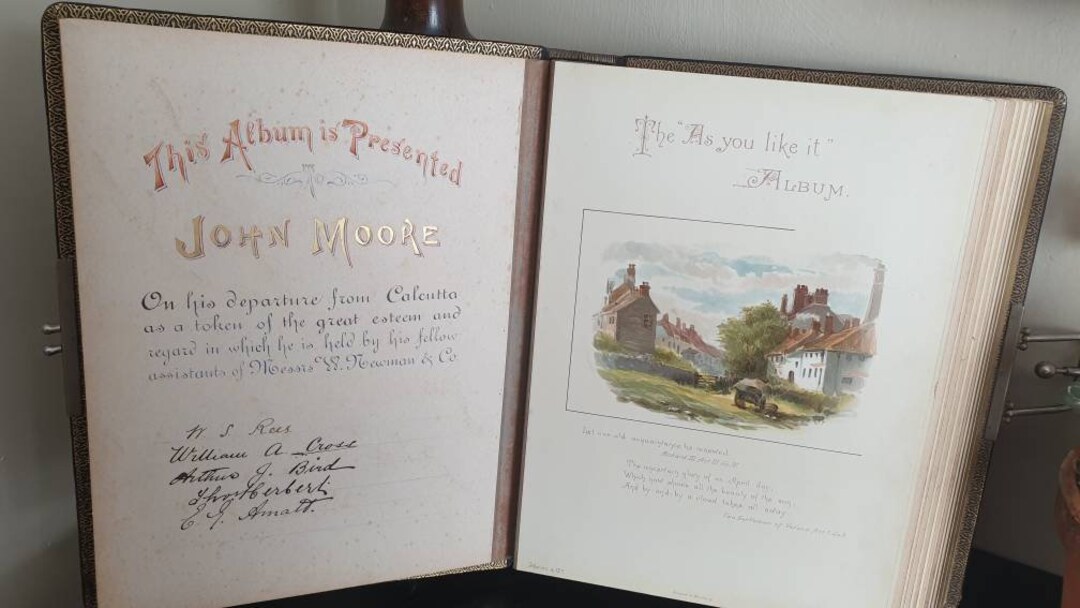 This Album is Presented
JOHN MOORE
On his departure from Calcutta
as a token of the great esteem and
regard in which he is held by his fellow
assistants of Messrs W. Newman & Co
W S Rees
William A Cross
Arthur J. Bird
Thos Herbert
E. J. Amatt.
The "As you like it"
ALBUM.
Let our old acquaintance be renewed.
The uncertain glory of an April day,
Which now shows all the beauty of the sun,
And by and by a cloud takes all away.
Two Gentlemen of Verona Act I